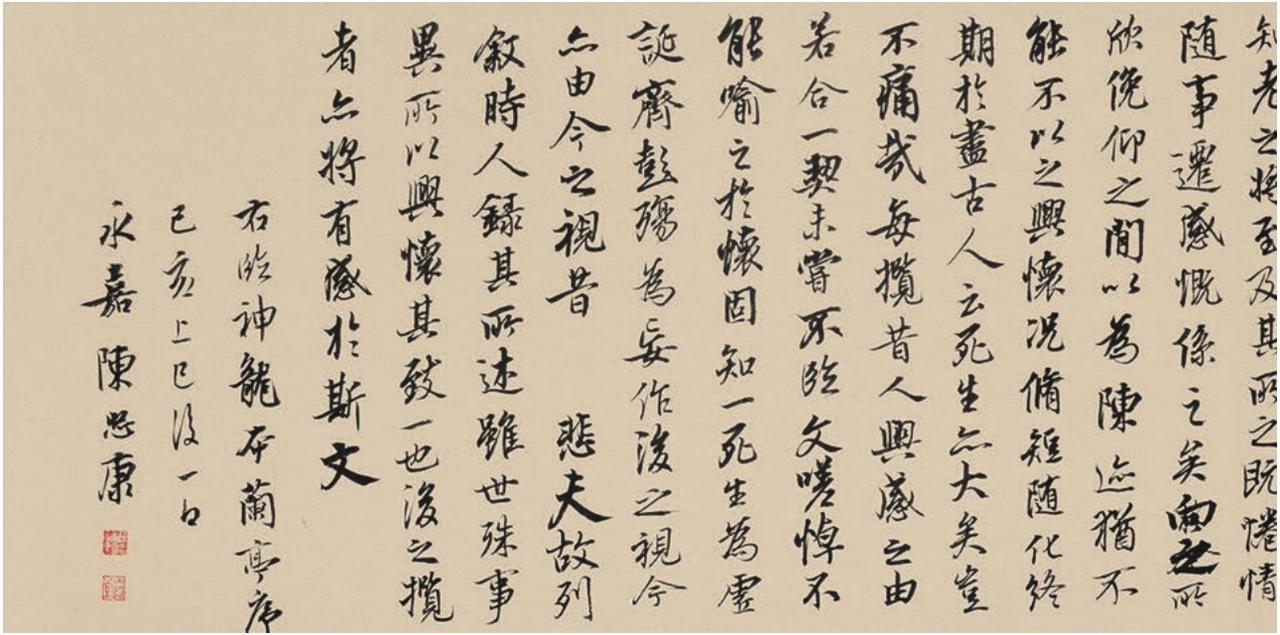 知老之将至及其所之既惓情
随事遷感慨係之矣向之所
欣俛仰之閒以為陳迹猶不
能不以之興懷況脩短随化終
期於盡古人云死生亦大矣豈
不痛哉每攬昔人興感之由
若合一契未嘗不臨文嗟悼不
能喻之於懷固知一死生為虛
誕齊彭殤為妄作後之視今
亦由今之視昔 悲夫故列
敘時人錄其所述雖世殊事
異所以興懷其致一也後之攬
者亦將有感於斯文
右臨神龍本蘭亭序
己亥上巳後一日
永嘉陳忠康